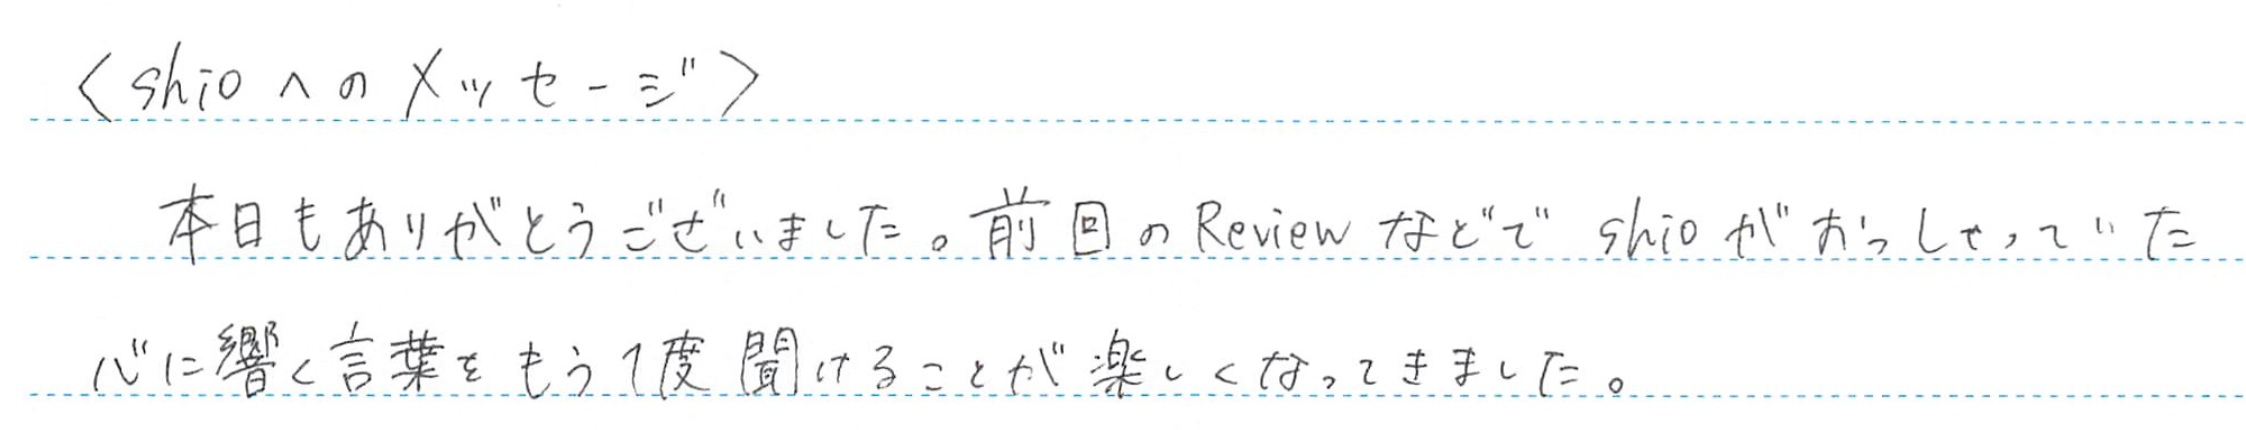 <shioへのメッセージ>
本日もありがとうございました。前回のReviewなどでshioがおっしゃっていた
心に響く言葉をもう1度聞けることが楽しくなってきました。